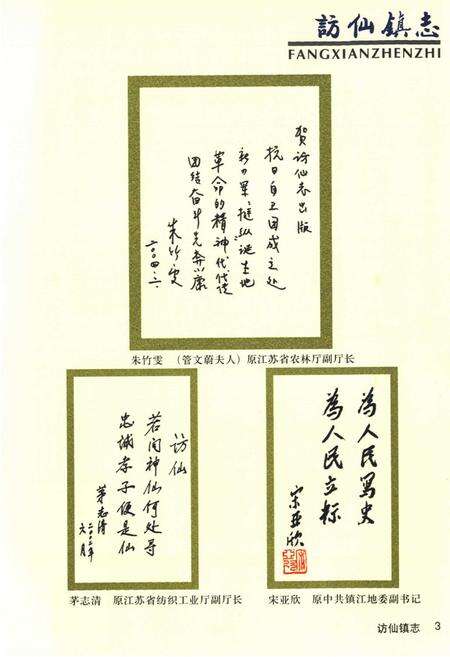 訪仙镇志
FANGXIANZHENZHI
贺访仙志出版
抗日自卫团成立地
新四军挺纵诞生地
革命的精神代代传
团结奋斗
朱竹雯
二〇〇四.六
朱竹雯 （管文蔚夫人）原江苏省农林厅副厅长
访仙
若问神仙何处寻
忠诚孝子便是仙
茅志清
二〇〇二年
六月
為人民写史
為人民立标
宋亚欣
茅志清 原江苏省纺织工业厅副厅长
宋亚欣 原中共镇江地委副书记
访仙镇志 3